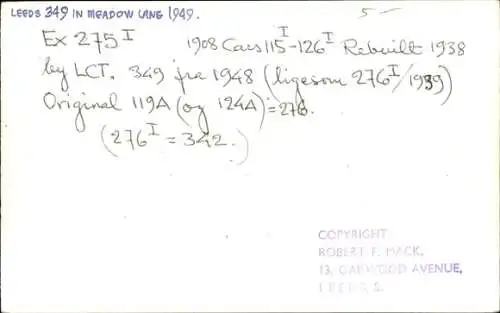 LEEDS 349 IN MEADOW LANE 1949.
5 —
Ex 275 I 1908 Cars 115 I – 126 I Rebuilt 1938
by LCT. 349 fra 1948 (ligesom 276 I / 1939)
Original 119A (og 124A) = 276.
(276 I = 342.)
COPYRIGHT
ROBERT F. MACK,
13, OAKWOOD AVENUE,
LEEDS, 8.